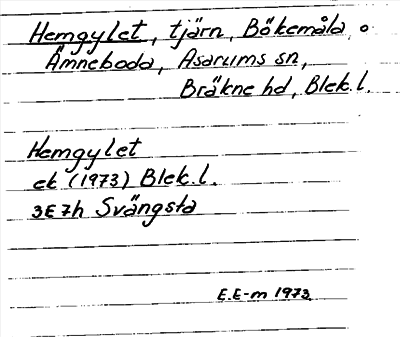 Hemgylet, tjärn, Bökemåla o
Ämneboda, Asarums sn,
Bräkne hd, Blek.l.
Hemgylet
ek (1973) Blek.l.
3E7h Svängsta
E.E-m 1973